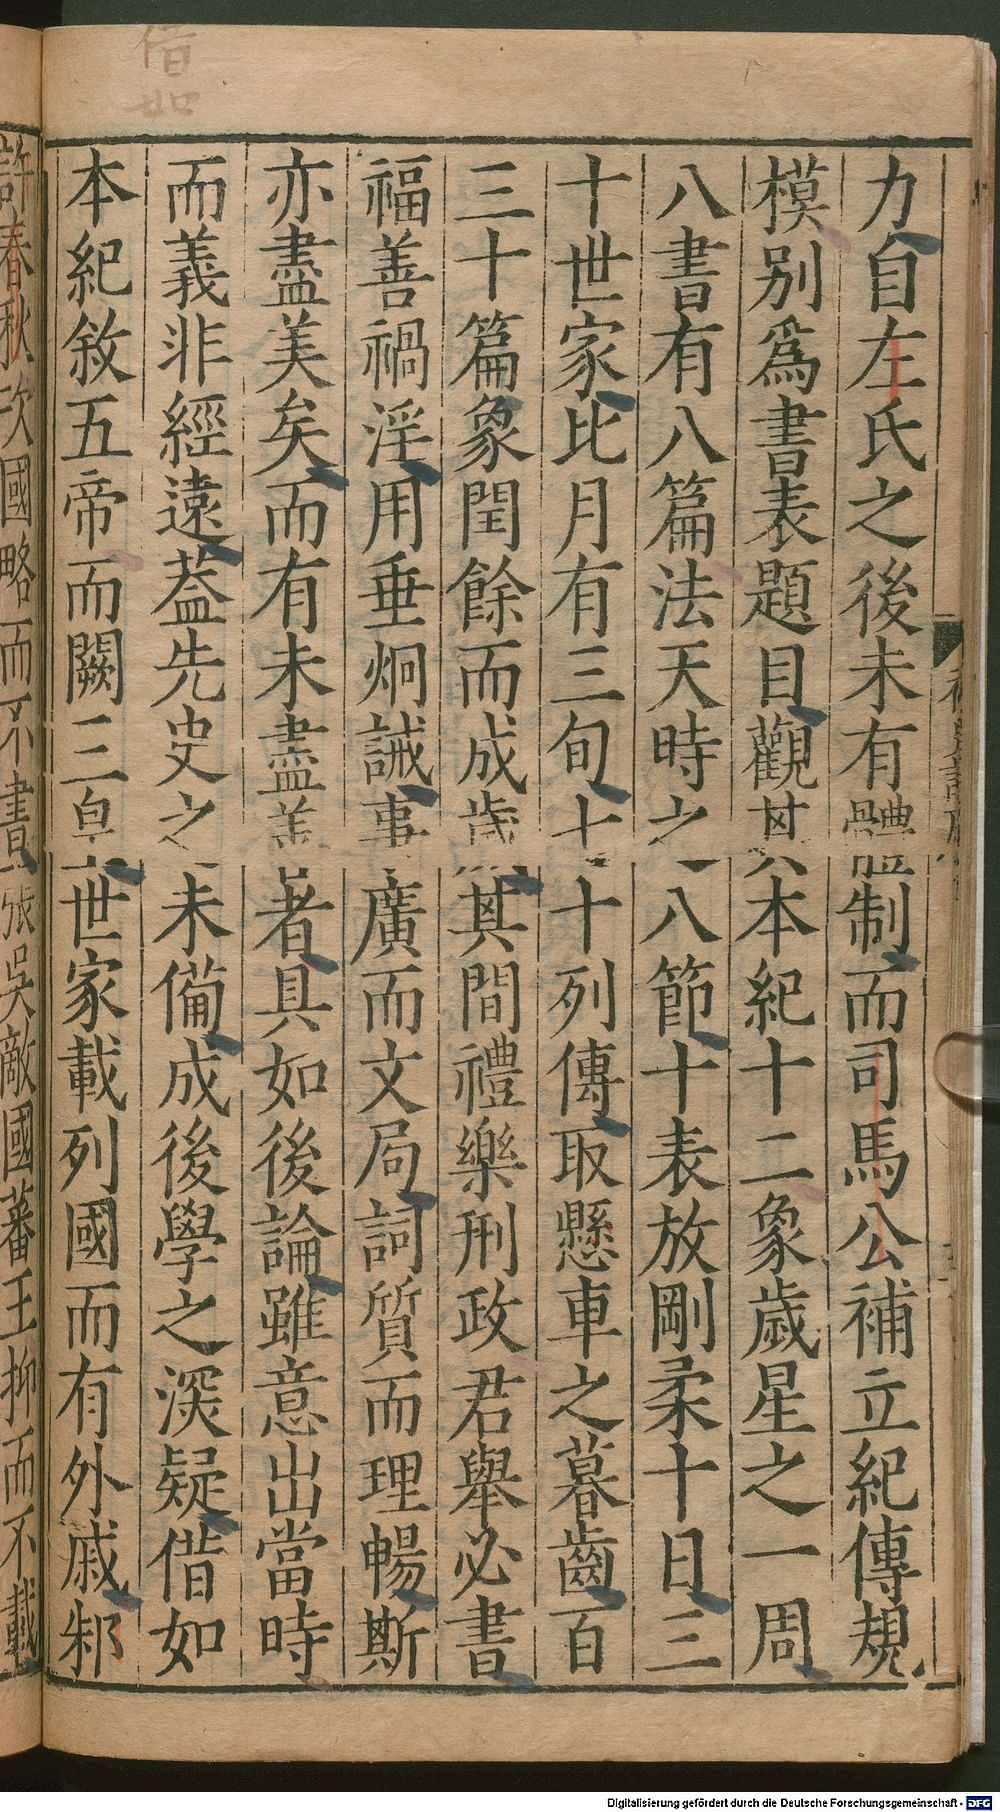 力自左氏之後未有體制而司馬公補立紀傳規
模別爲書表題目觀其本紀十二象歲星之一周
八書有八篇法天時之八節十表放剛柔十日三
十世家比月有三旬七十列傳取懸車之暮齒百
三十篇象閏餘而成歲其間禮樂刑政君舉必書
福善禍淫用垂炯誡事廣而文局詞質而理暢斯
亦盡美矣而有未盡善者具如後論雖意出當時
而義非經遠葢先史之未備成後學之深疑借如
本紀敘五帝而闕三皇世家載列國而有外戚邾
許春秋次國略而不書張吳敵國蕃王抑而不載
借如
Digitalisierung gefördert durch die Deutsche Forschungsgemeinschaft - DFG